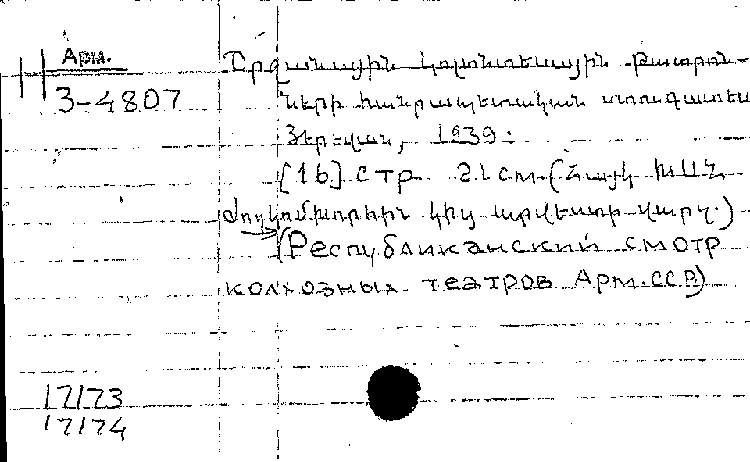 Арм.
3-4807
Շրջանային կոլտնտեսային թատրոն-
ների հանրապետական ստուգատես
Յերևան, 1939:
[16] стр. 21 см. (Հայկ. ԽՍՀ
Ժողկոմխորհին կից արվեստի վարչ.)
(Республиканский смотр
колхозных театров Арм. ССР)
17173
17174